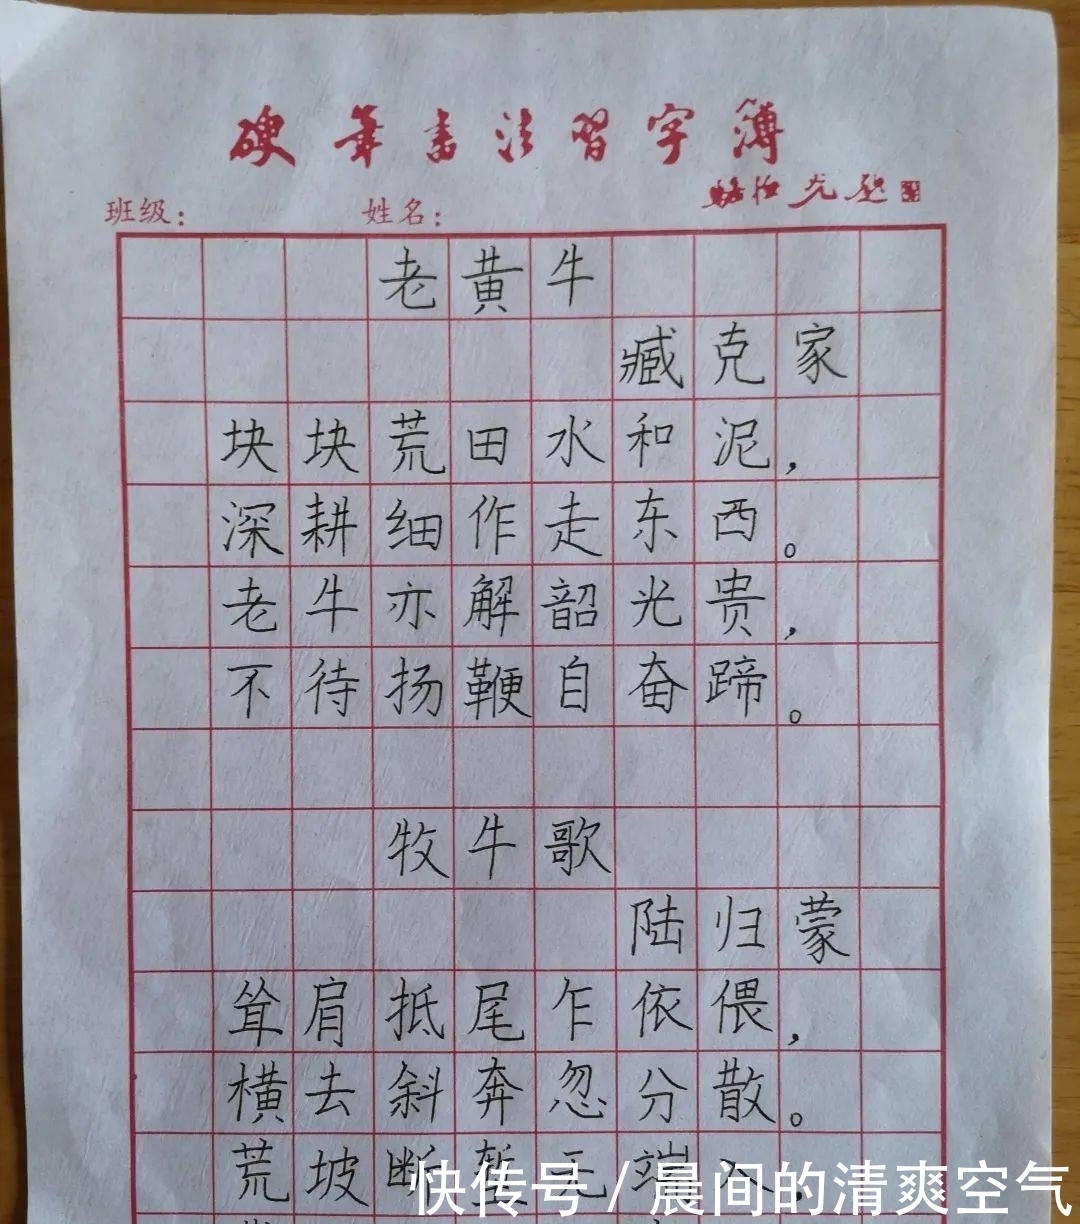 硬笔书法习字簿
班级： 姓名：
老黄牛
臧克家
块块荒田水和泥，
深耕细作走东西。
老牛亦解韶光贵，
不待扬鞭自奋蹄。
牧牛歌
陆归蒙
耸肩抵尾乍依偎，
横去斜奔忽分散。
荒坡断堑无端入，
快传号／晨间的清爽空气